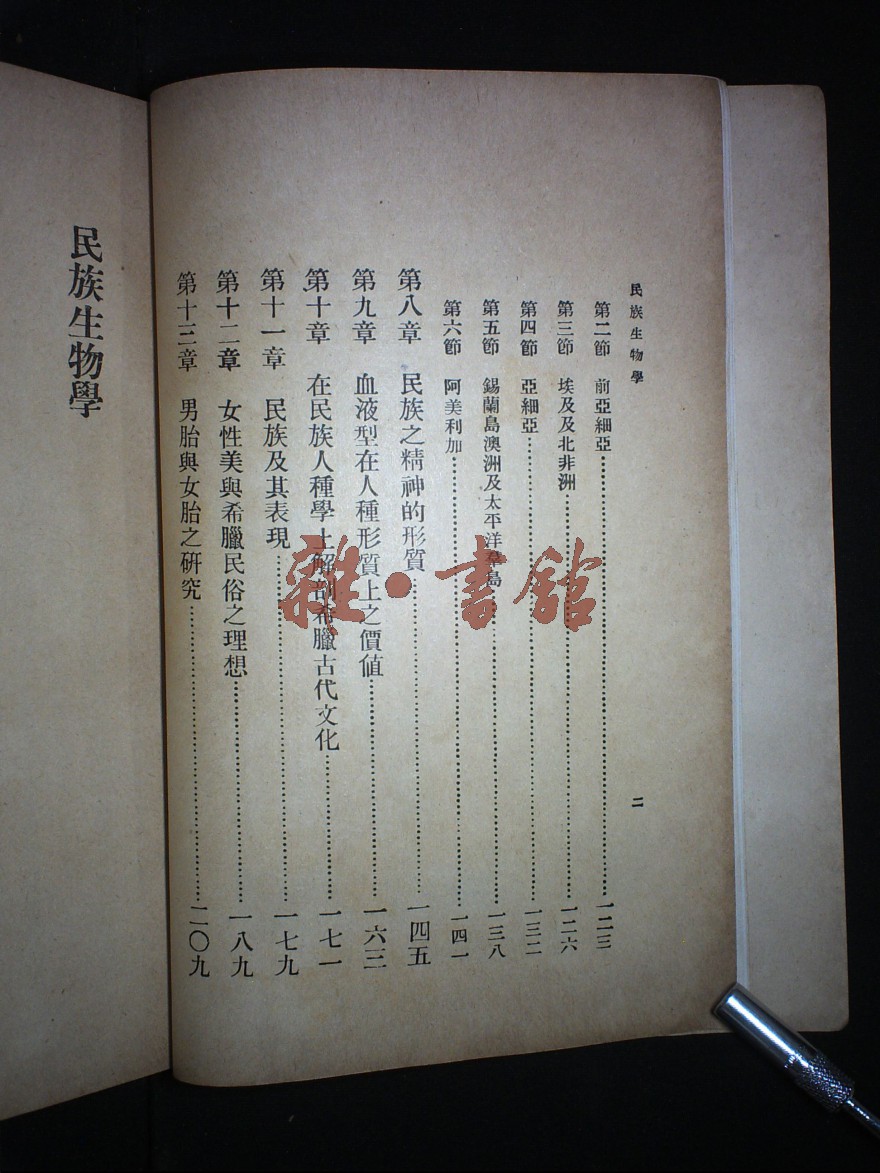 民族生物學
二
第二節 前亞細亞……一二三
第三節 埃及及北非洲……一二六
第四節 亞細亞……一三二
第五節 錫蘭島澳洲及太平洋羣島……一三八
第六節 阿美利加……一四一
第八章 民族之精神的形質……一四五
第九章 血液型在人種形質上之價值……一六三
第十章 在民族人種學上解剖希臘古代文化……一七一
第十一章 民族及其表現……一七九
第十二章 女性美與希臘民俗之理想……一八九
第十三章 男胎與女胎之研究……二〇九
民族生物學
雜·書館